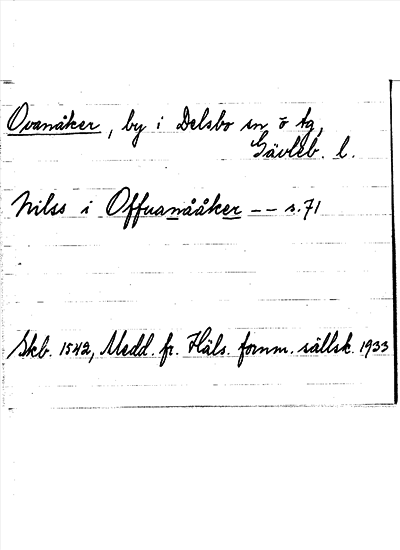 Ovanåker, by i Delsbo sn ö tg,
Gävleb. l.
Nilss i Offuanååker -- s. 71
Skb. 1542, Medd. fr. Häls. fornm. sällsk. 1933